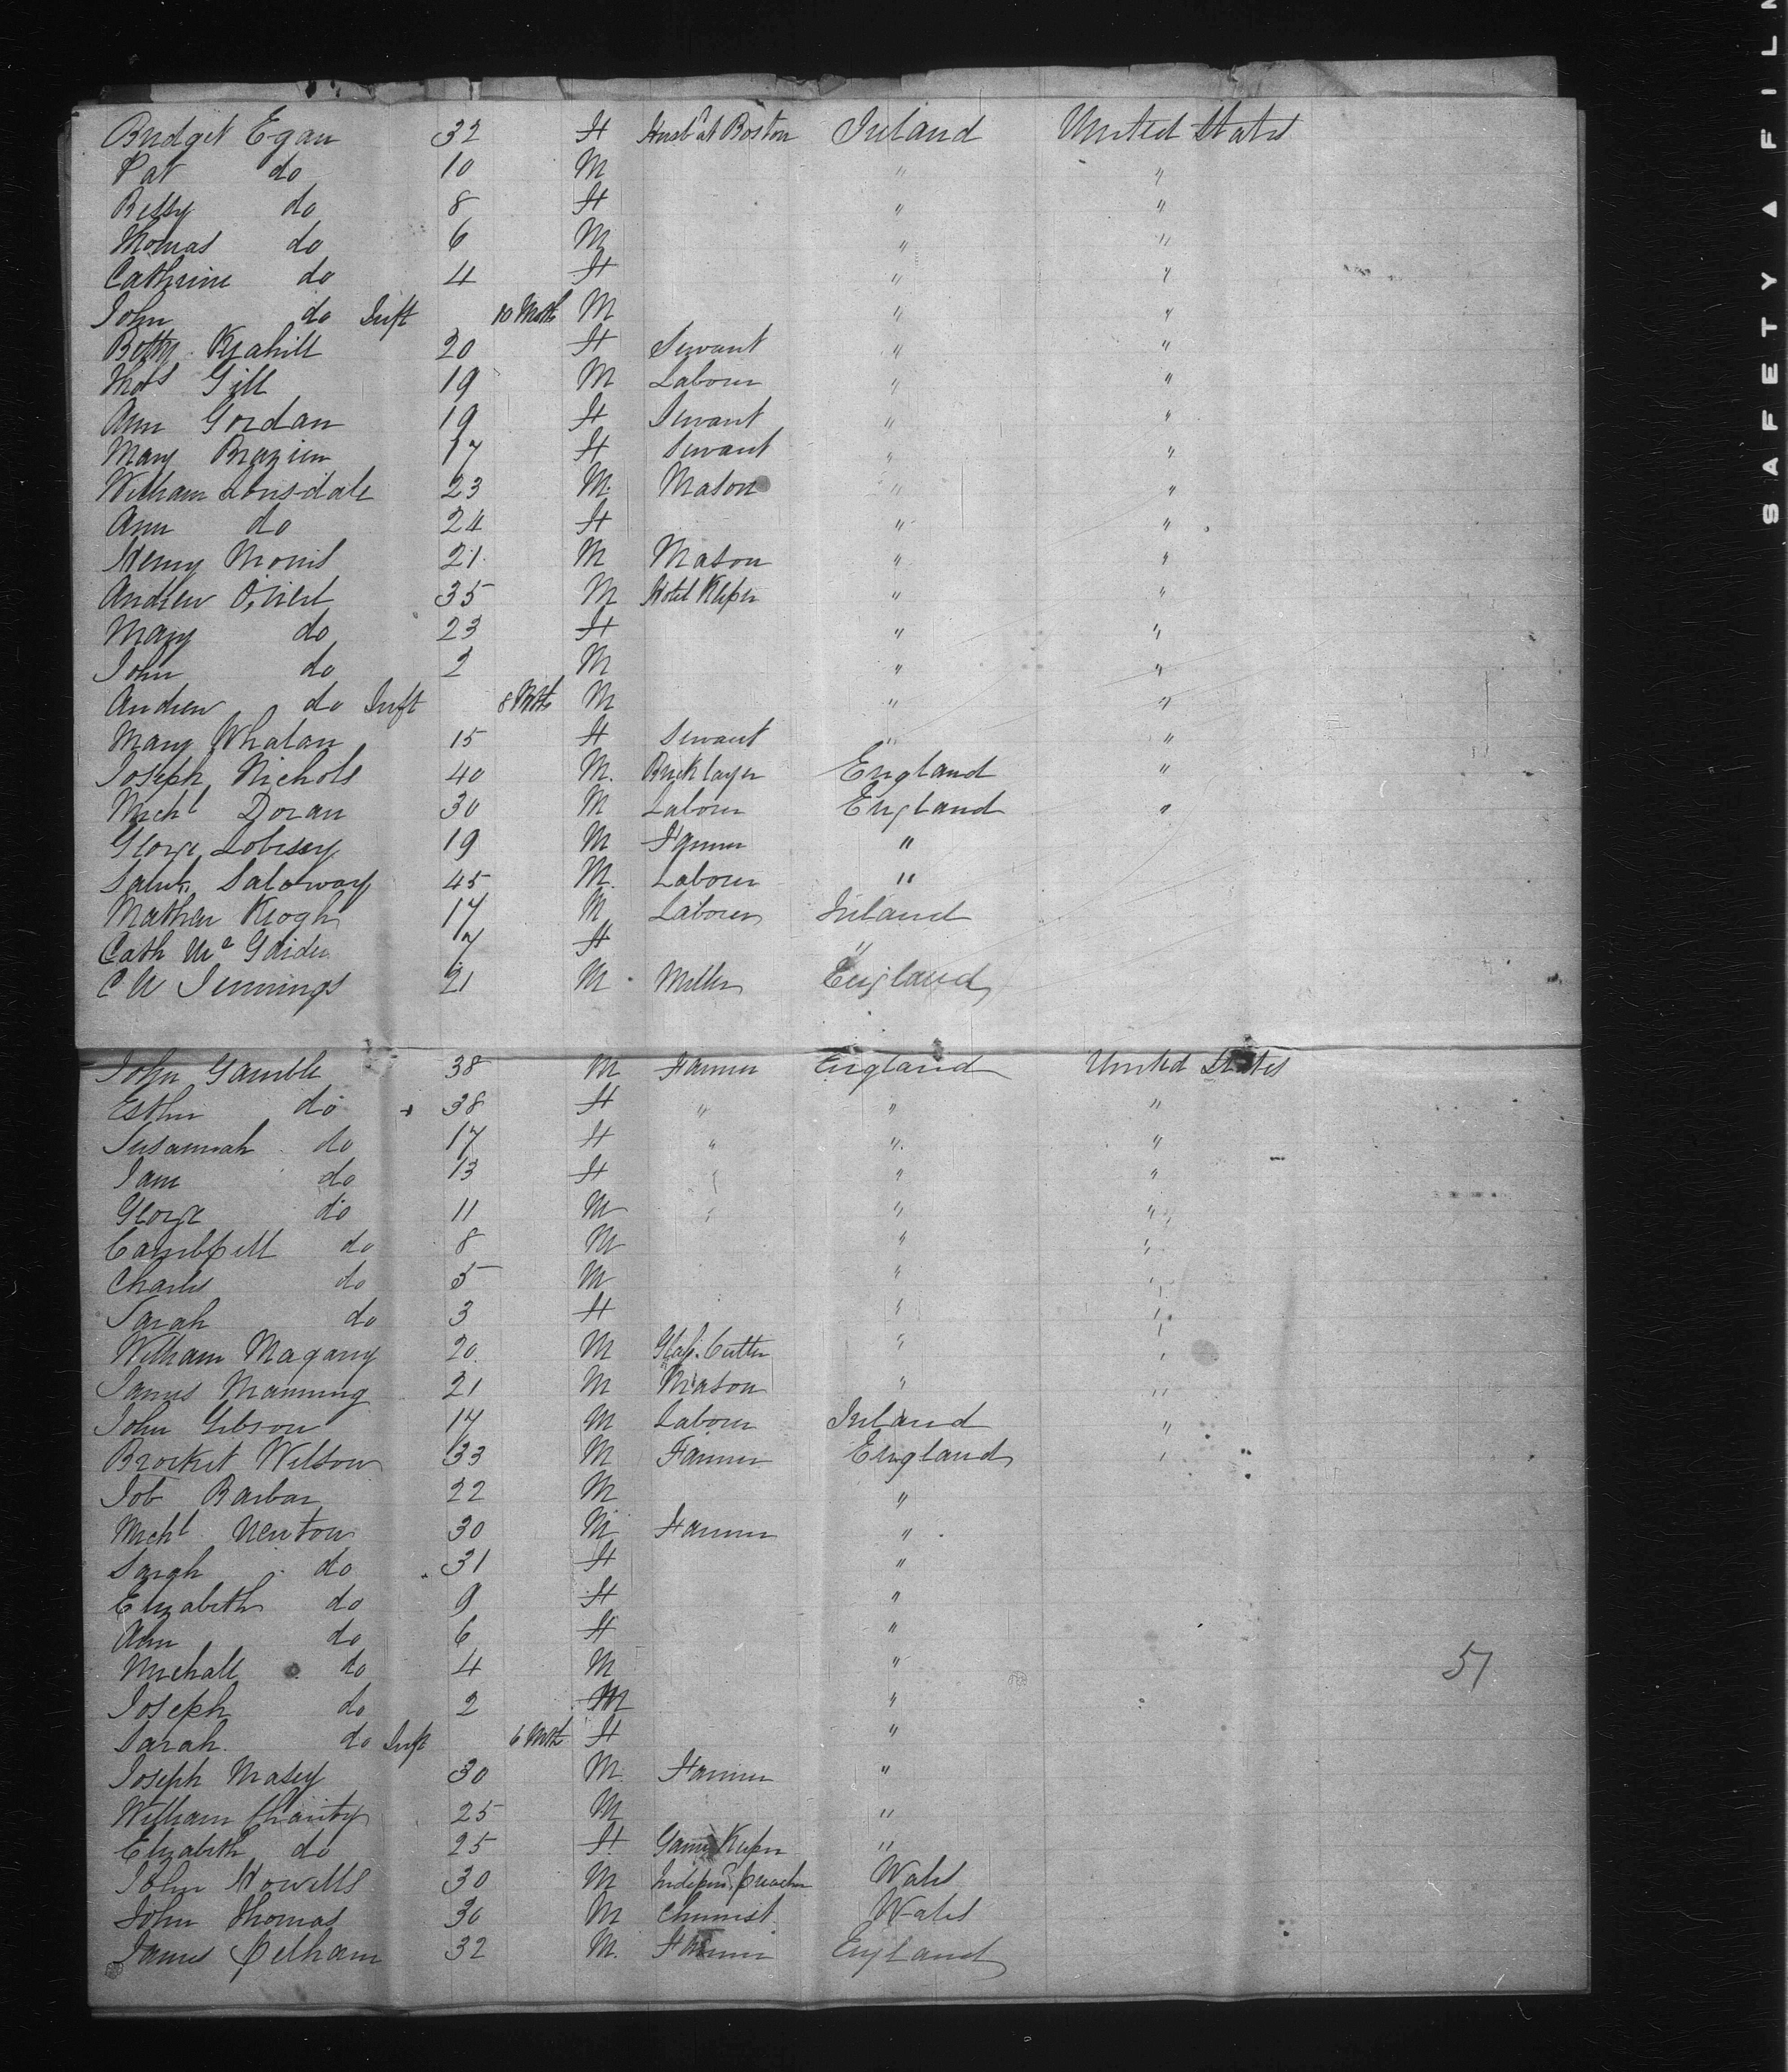 Bridget Egan 32 F Husbd at Boston Ireland United States
Pat do 10 M " "
Bessy do 8 F " "
Thomas do 6 M " "
Catherine do 4 F " "
John do Inft 10 Mths M " "
Betty Kyahill 20 F Servant " "
Thos Gill 19 M Labourer " "
Ann Gordan 19 F Servant " "
Mary Brazien 17 F Servant " "
William Lonsdale 23 M Mason " "
Ann do 24 F " "
Henry Morris 21 M Mason " "
Andrew O'Niel 35 M Hotel Keeper " "
Mary do 23 F " "
John do 2 M " "
Andrew do Inft 8 Mths M " "
Mary Whalan 15 F Servant " "
Joseph Nichols 40 M Bricklayer England "
Michl Doran 30 M Labourer England "
George 19 M Farmer "
Saml Saloway 45 M Labourer "
Mathew Keogh 17 M Labourer Ireland
Cath Mc 7 F "
C W Jennings 21 M Miller England
John Gamble 38 M Farmer England United States
Esther do 38 F " " "
Susannah do 17 F " " "
Jane do 13 F " " "
George do 11 M " " "
Campbell do 8 M " "
Charles do 5 M " "
Sarah do 3 F " "
William Magany 20 M Glass Cutter " "
James Manning 21 M Mason " "
John Gibson 17 M Labourer Ireland "
Brocket Wilson 33 M Farmer England "
Job Barbar 22 M "
Michl Newton 30 M Farmer "
Sarah do 31 F "
Elizabeth do 9 F "
Ann do 6 F "
Michall do 4 M "
Joseph do 2 M "
Sarah do Inft 6 Mths F "
Joseph Masey 30 M Farmer "
William Charity 25 M "
Elizabeth do 25 F Game Keeper "
John Howells 30 M Indepent preacher Wales
John Thomas 30 M Chemist Wales
James Pelham 32 M Farmer England
51
SAFETY ▲ FILM